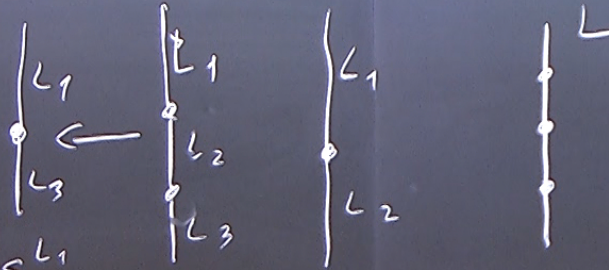 L1
L3
L1
L1
L2
L3
L1
L2
L